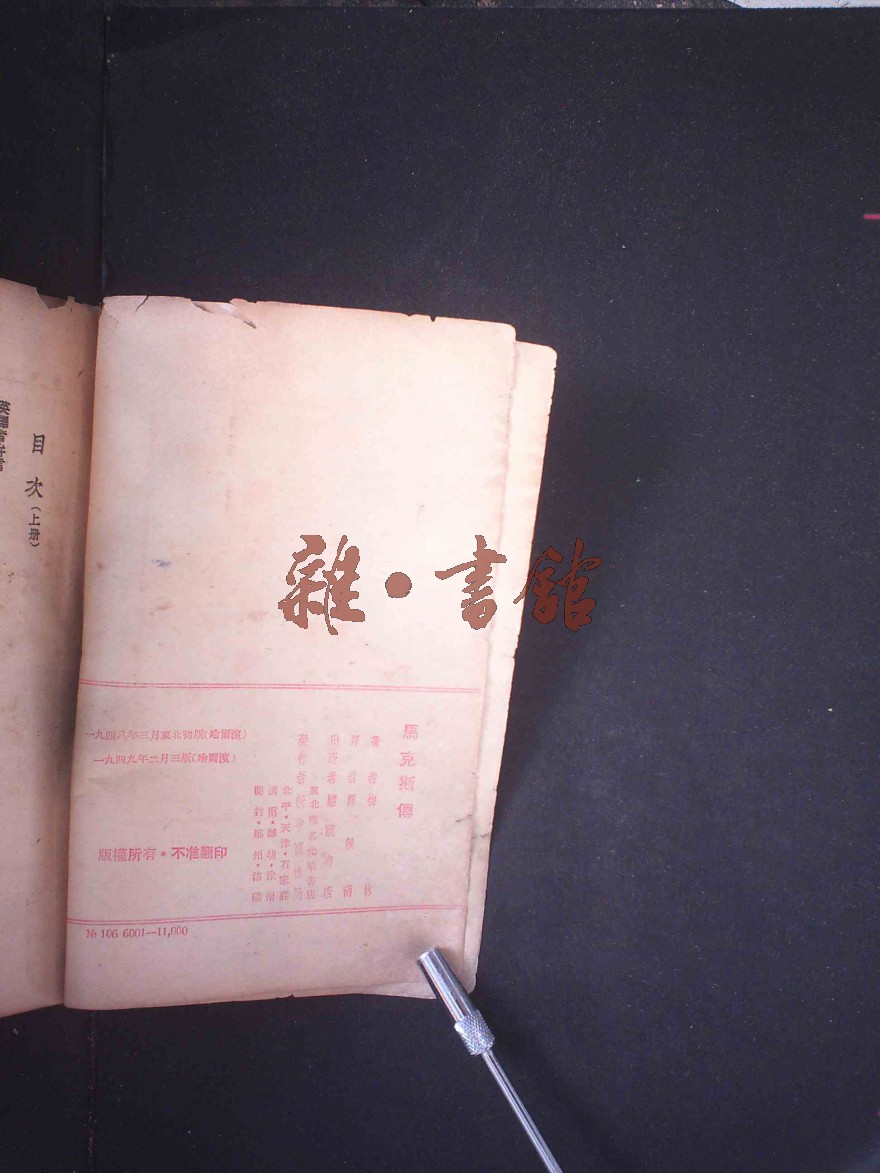 馬克斯傳
著者 梅林
譯者 羅稷南
印改者 駱駝書店
發行者 新中國書局
東北 光華書店
北平·天津·石家莊
濟南·濰坊·徐州
開封·鄭州·洛陽
一九四八年三月東北初版(哈爾濱)
一九四九年二月三版(哈爾濱)
版權所有·不准翻印
№ 106 6001—11,000
目次(上册)
雜·書館